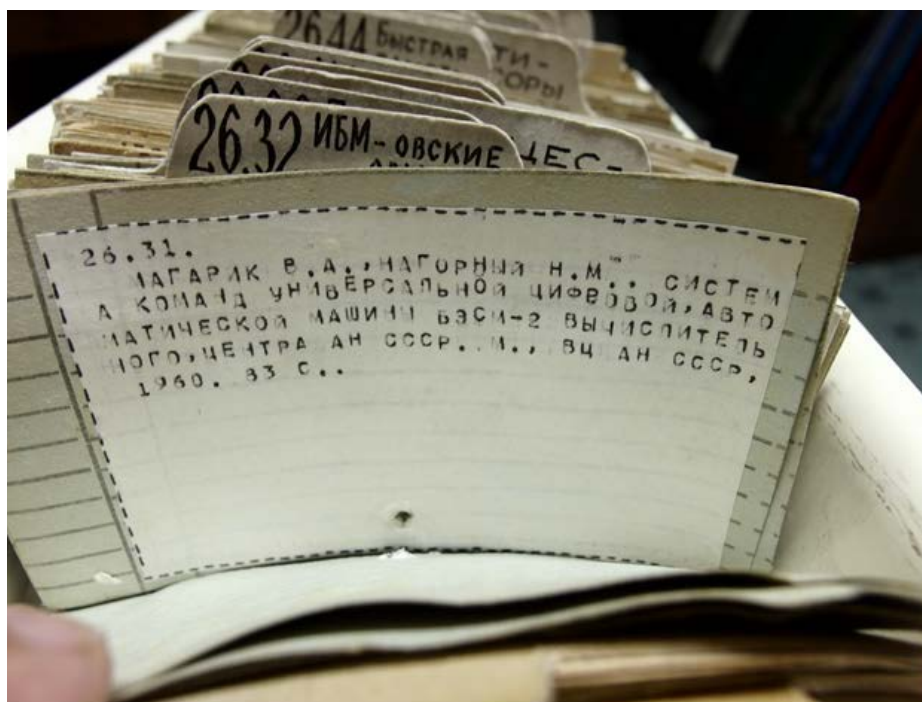 26.44 БЫСТРАЯ
ТИ-
ОРЫ
26.32 ИБМ-ОВСКИЕ
ЦЕС-
26.31.
МАГАРИК В.А.,НАГОРНЫЙ Н.М.. СИСТЕМ
А КОМАНД УНИВЕРСАЛЬНОЙ ЦИФРОВОЙ,АВТО
МАТИЧЕСКОЙ МАШИНЫ БЭСМ-2 ВЫЧИСЛИТЕЛЬ
НОГО,ЦЕНТРА АН СССР. М., ВЦ АН СССР,
1960. 83 С..